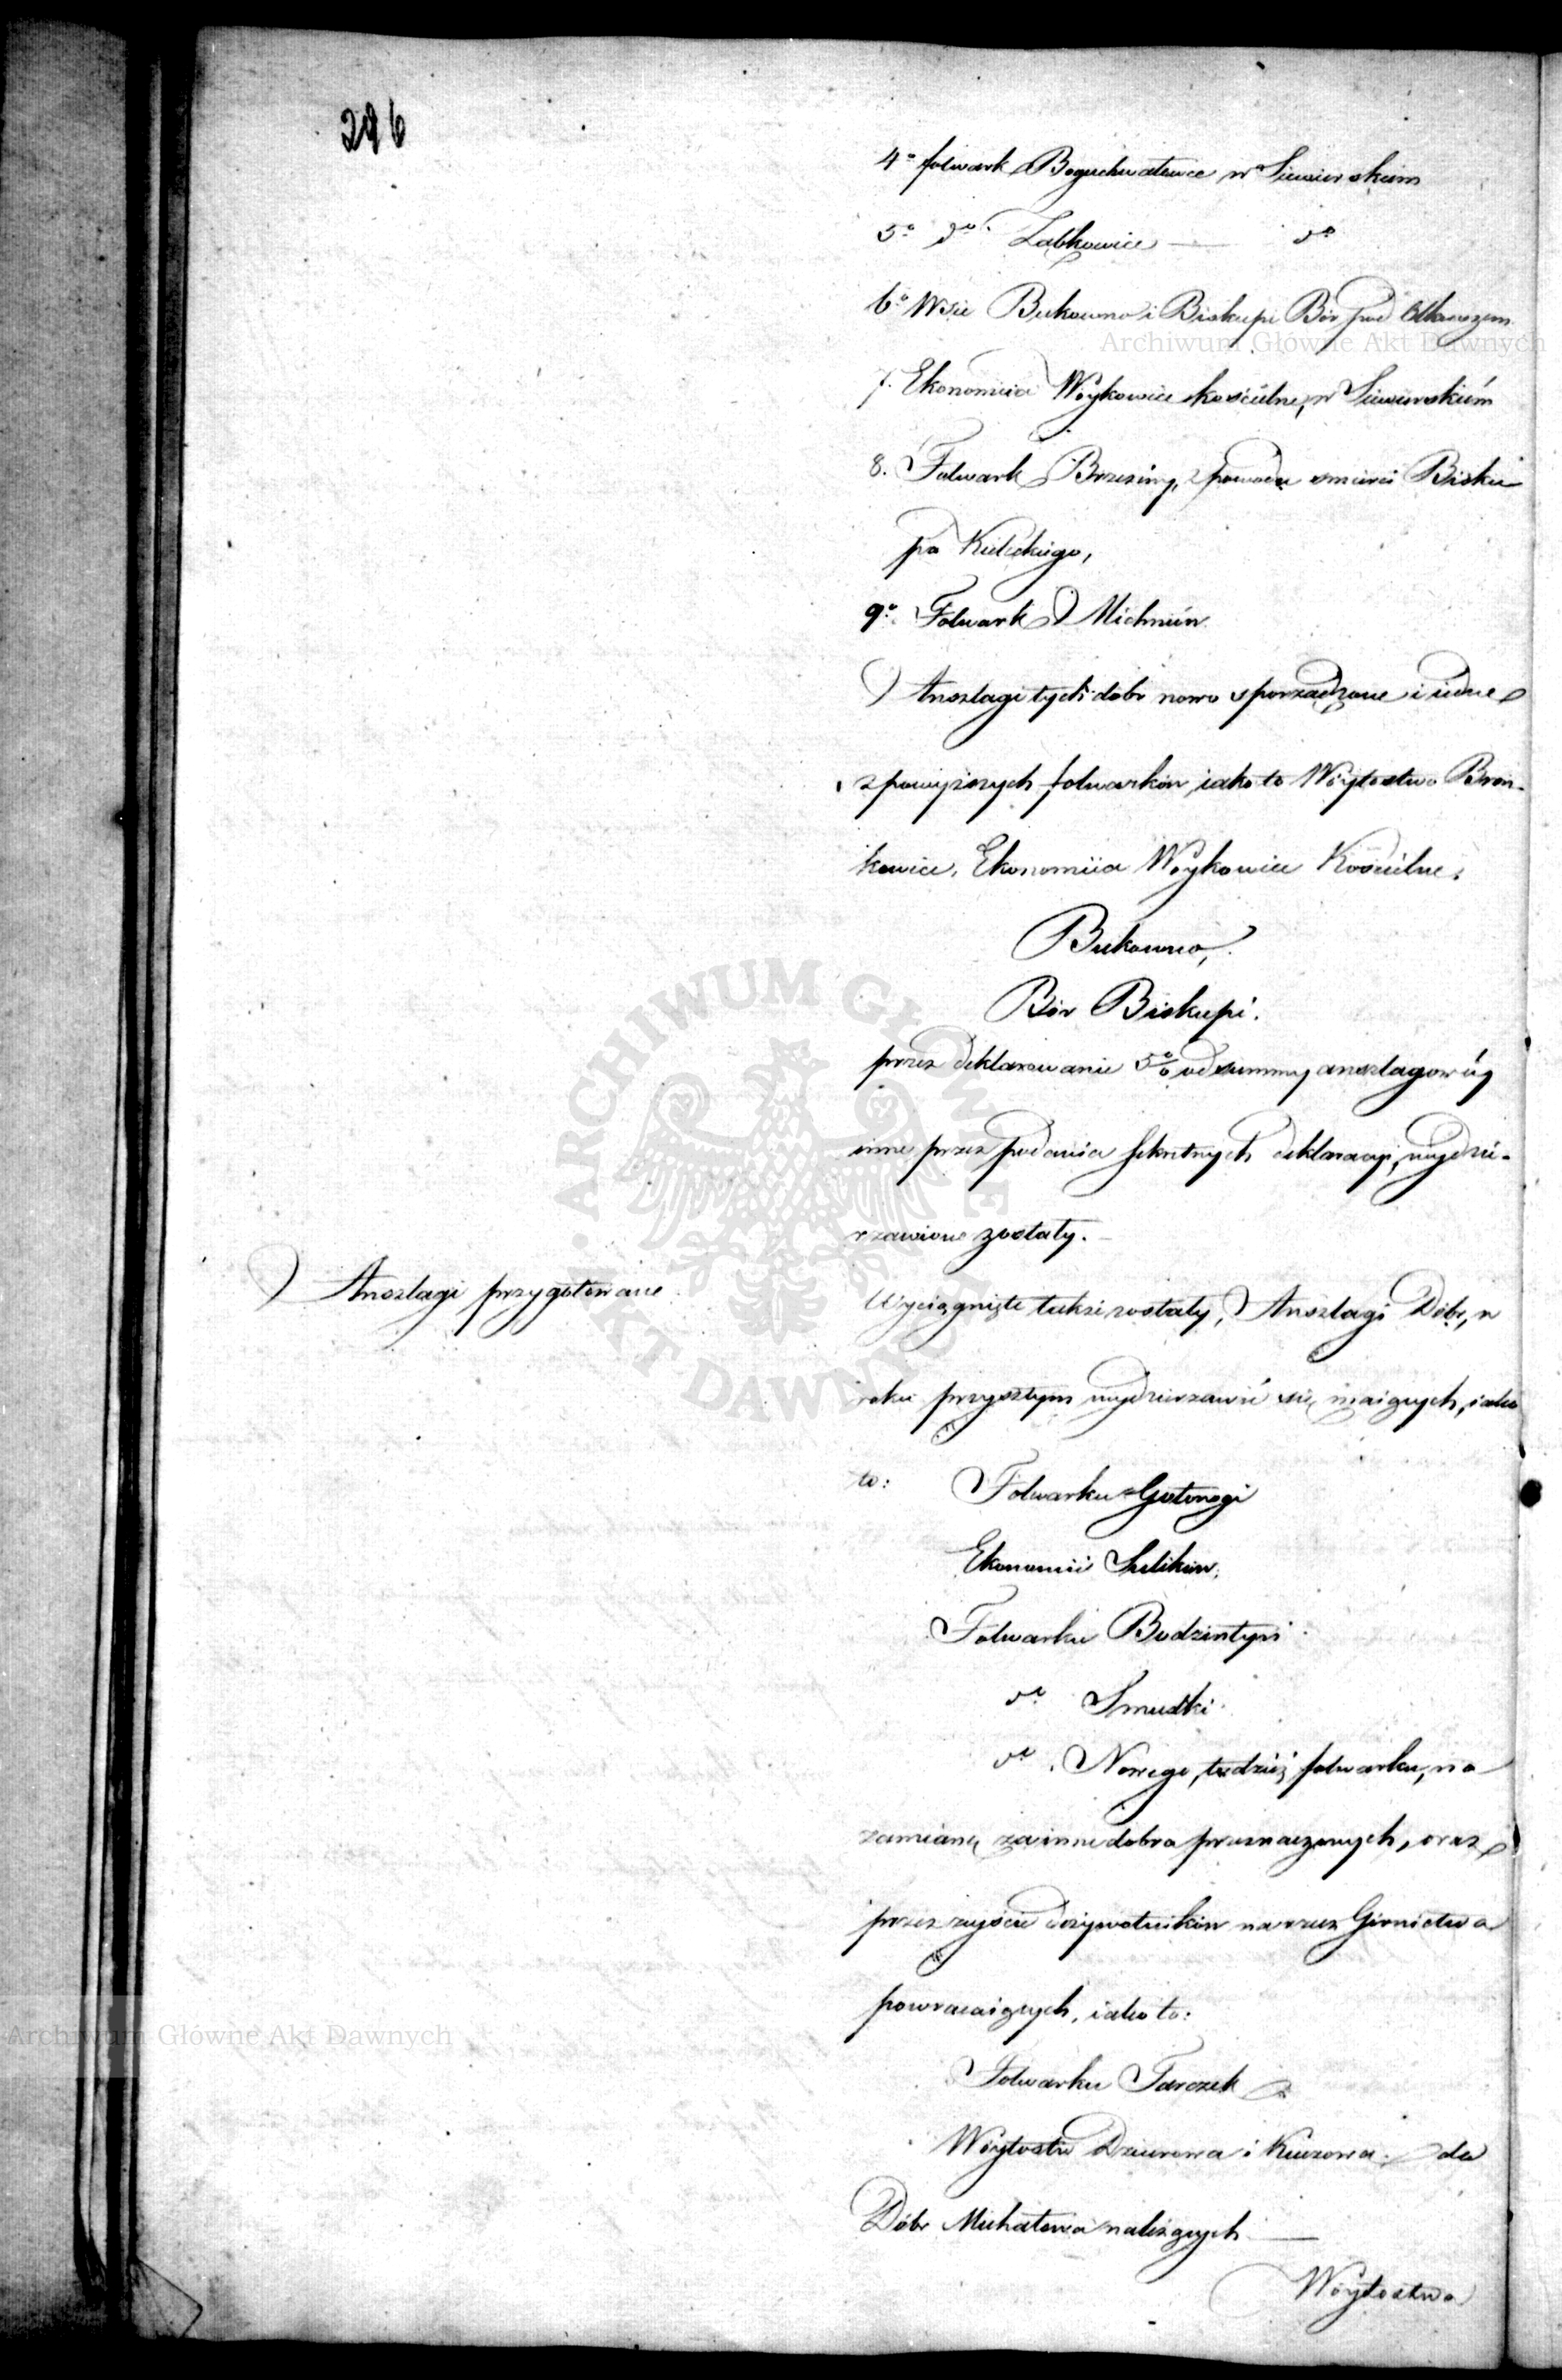 296
4º folwark Boguchwałowice w Siewierskim
5º dº Ząbkowice — dº
6º Wsie Bukowno i Biskupi Bór pod Olkuszem
7. Ekonomiia Woykowice kościelne, w Siewierskim
8. Folwark Brzeziny, z powodu smierci Bisku
pa Kieleckiego,
9º Folwark Michniów
Anszlagi tych dobr nowo sporządzone i iedne
z powyższych folwarków, iako to Wóytostwo Bron-
kowice, Ekonomiia Woykowice Kościelne,
Bukowno,
Bór Biskupi.
przez deklarowanie 5% od summy anszlagowéy
inne przez podania sekretnych deklaracyi, wydzie-
rzawione zostały.
Anszlagi przygotowane
Wyciągnięte także zostały, Anszlagi Dóbr, w
roku przyszłym wydzierzawić się maiących, iako
to: Folwarku Gołonogi
Ekonomii Sulików,
Folwarku Bodzintyn
dº Smudki
dº Nowego, tudzież folwarku, na
zamianę za inne dobra przeznaczonych, oraz
przez zeyście dożywotników na rzecz Górnictwa
powracaiących, iako to:
Folwarku Tarczek
Wóytostw Dziurowa i Kuczowa do
Dóbr Michałowa należących —
Wóytostwa
ARCHIWUM GŁÓWNE AKT DAWNYCH
Archiwum Główne Akt Dawnych
Archiwum Główne Akt Dawnych